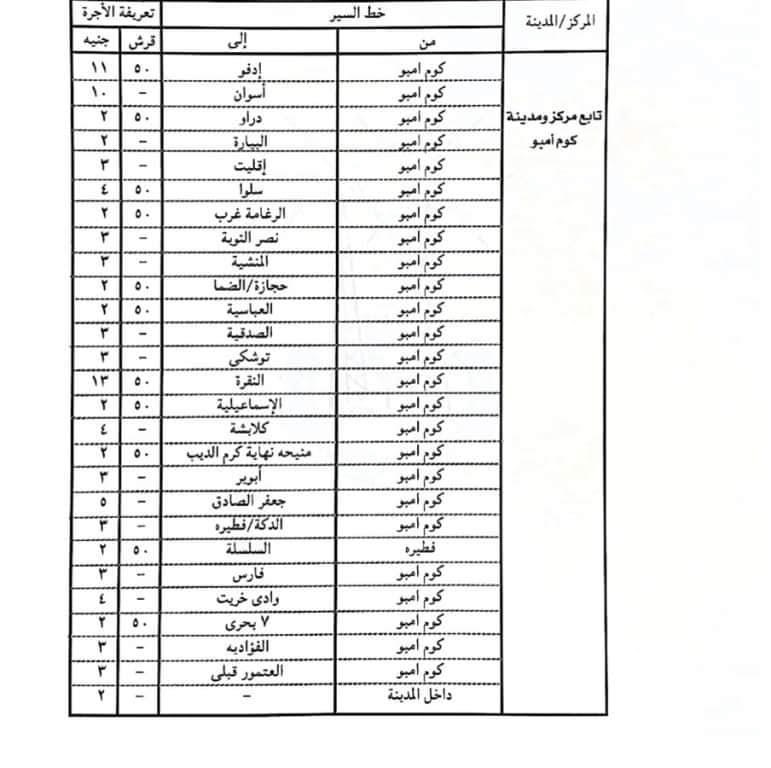 المركز/المدينة خط السير تعريفة الأجرة
من إلى قرش جنيه
تابع مركز ومدينة كوم أمبو
كوم امبو إدفو ٥٠ ١١
كوم امبو أسوان – ١٠
كوم امبو دراو ٥٠ ٢
كوم امبو البيارة – ٢
كوم امبو إقليت – ٣
كوم امبو سلوا ٥٠ ٤
كوم امبو الرغامة غرب ٥٠ ٢
كوم امبو نصر النوبة – ٣
كوم امبو المنشية – ٣
كوم امبو حجازة/الضما ٥٠ ٢
كوم امبو العباسية ٥٠ ٢
كوم امبو الصدقية – ٣
كوم امبو توشكى – ٣
كوم امبو النقرة ٥٠ ١٣
كوم امبو الإسماعيلية ٥٠ ٢
كوم امبو كلابشة – ٤
كوم امبو منيحه نهاية كرم الديب ٥٠ ٢
كوم امبو أبوير – ٣
كوم امبو جعفر الصادق – ٥
كوم امبو الدكة/فطيره – ٣
فطيره السلسلة ٥٠ ٢
كوم امبو فارس – ٣
كوم امبو وادى خريت – ٤
كوم امبو ٧ بحرى ٥٠ ٢
كوم امبو الفؤادبه – ٣
كوم امبو العتمور قبلى – ٣
داخل المدينة – – ٢